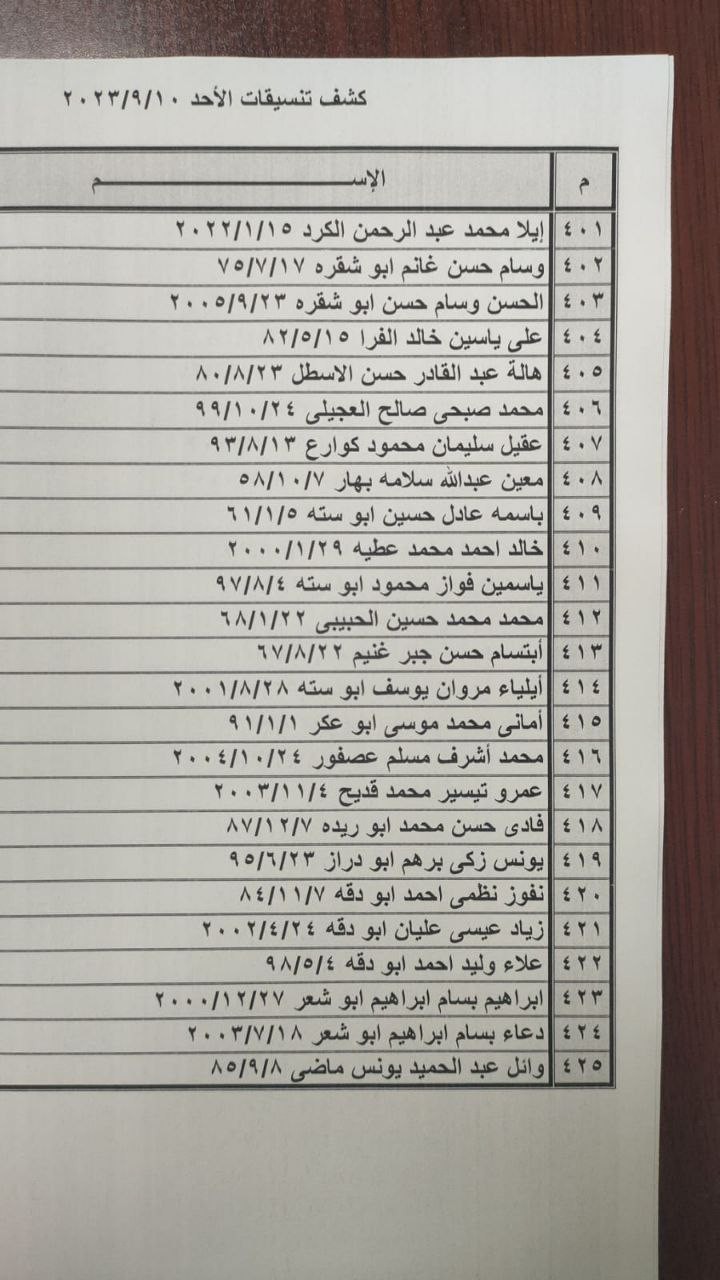 كشف تنسيقات الأحد ٢٠٢٣/٩/١٠
م الإســــــــم
٤٠١ إيلا محمد عبد الرحمن الكرد ٢٠٢٢/١/١٥
٤٠٢ وسام حسن غانم ابو شقره ٧٥/٧/١٧
٤٠٣ الحسن وسام حسن ابو شقره ٢٠٠٥/٩/٢٣
٤٠٤ على ياسين خالد الفرا ٨٢/٥/١٥
٤٠٥ هالة عبد القادر حسن الاسطل ٨٠/٨/٢٣
٤٠٦ محمد صبحى صالح العجيلى ٩٩/١٠/٢٤
٤٠٧ عقيل سليمان محمود كوارع ٩٣/٨/١٣
٤٠٨ معين عبدالله سلامه بهار ٥٨/١٠/٧
٤٠٩ باسمه عادل حسين ابو سته ٦١/١/٥
٤١٠ خالد احمد محمد عطيه ٢٠٠٠/١/٢٩
٤١١ ياسمين فواز محمود ابو سته ٩٧/٨/٤
٤١٢ محمد محمد حسين الحبيبى ٦٨/١/٢٢
٤١٣ أبتسام حسن جبر غنيم ٦٧/٨/٢٢
٤١٤ أيلياء مروان يوسف ابو سته ٢٠٠١/٨/٢٨
٤١٥ أمانى محمد موسى ابو عكر ٩١/١/١
٤١٦ محمد أشرف مسلم عصفور ٢٠٠٤/١٠/٢٤
٤١٧ عمرو تيسير محمد قديح ٢٠٠٣/١١/٤
٤١٨ فادى حسن محمد ابو ريده ٨٧/١٢/٧
٤١٩ يونس زكى برهم ابو دراز ٩٥/٦/٢٣
٤٢٠ نفوز نظمى احمد ابو دقه ٨٤/١١/٧
٤٢١ زياد عيسى عليان ابو دقه ٢٠٠٢/٤/٢٤
٤٢٢ علاء وليد احمد ابو دقه ٩٨/٥/٤
٤٢٣ ابراهيم بسام ابراهيم ابو شعر ٢٠٠٠/١٢/٢٧
٤٢٤ دعاء بسام ابراهيم ابو شعر ٢٠٠٣/٧/١٨
٤٢٥ وائل عبد الحميد يونس ماضى ٨٥/٩/٨